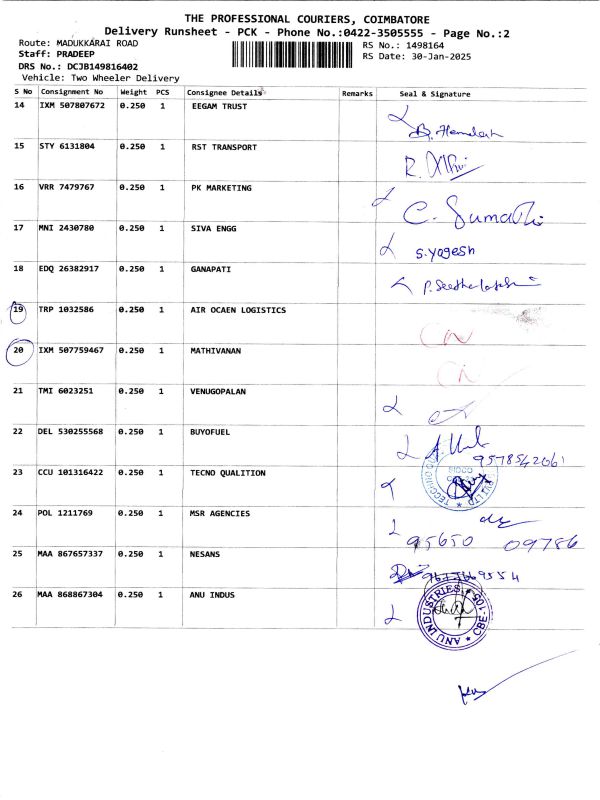 THE PROFESSIONAL COURIERS, COIMBATORE
Delivery Runsheet - PCK - Phone No.:0422-3505555 - Page No.:2
Route: MADUKKARAI ROAD
RS No.: 1498164
Staff: PRADEEP
RS Date: 30-Jan-2025
DRS No.: DCJB149816402
Vehicle: Two Wheeler Delivery
S No Consignment No Weight PCS Consignee Details Remarks Seal & Signature
14 IXM 507807672 0.250 1 EEGAM TRUST
15 STY 6131804 0.250 1 RST TRANSPORT
16 VRR 7479767 0.250 1 PK MARKETING C. Sumathi
17 MNI 2430780 0.250 1 SIVA ENGG S.yogesh
18 EDQ 26382917 0.250 1 GANAPATI
19 TRP 1032586 0.250 1 AIR OCAEN LOGISTICS CN
20 IXM 507759467 0.250 1 MATHIVANAN CN
21 TMI 6023251 0.250 1 VENUGOPALAN
22 DEL 530255568 0.250 1 BUYOFUEL 9578542061
23 CCU 101316422 0.250 1 TECNO QUALITION
24 POL 1211769 0.250 1 MSR AGENCIES 95650 09786
25 MAA 867657337 0.250 1 NESANS
26 MAA 868867304 0.250 1 ANU INDUS ANU INDUSTRIES CBE-105